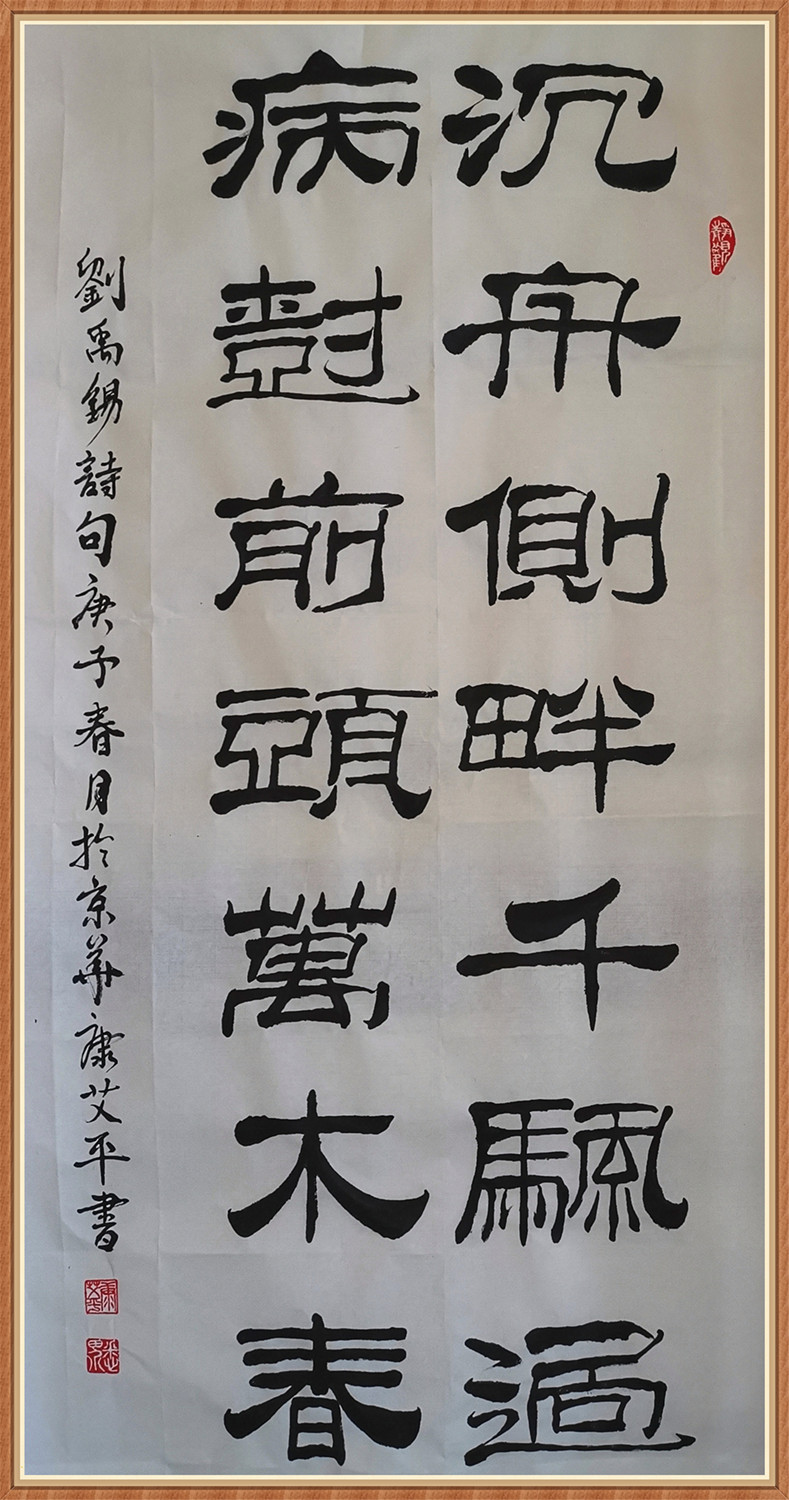 靜觀
沉舟側畔千颿過
病樹前頭萬木春
劉禹錫詩句庚子春月於京華康艾平書
康艾平